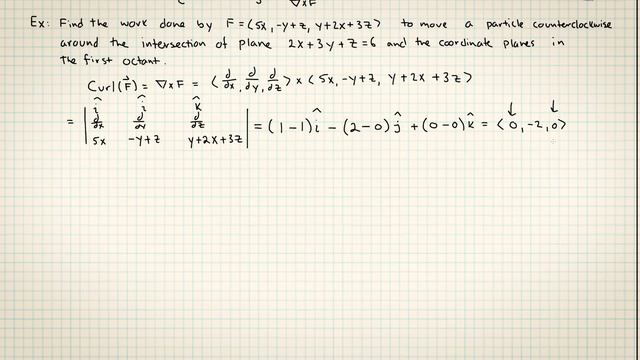 ∇×F
Ex: Find the work done by F = ⟨5x, -y+z, y+2x+3z⟩ to move a particle counterclockwise
around the intersection of plane 2x+3y+z=6 and the coordinate planes in
the first octant.
Curl(F⃗) = ∇×F = ⟨d/dx, d/dy, d/dz⟩ × ⟨5x, -y+z, y+2x+3z⟩
î ĵ k̂
= | d/dx d/dy d/dz | = (1-1)î - (2-0)ĵ + (0-0)k̂ = ⟨0, -2, 0⟩
5x -y+z y+2x+3z